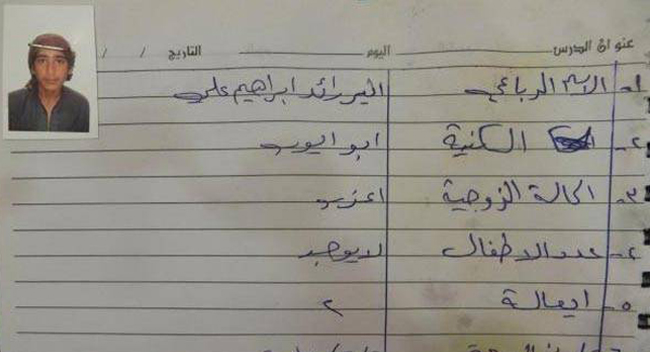 عنوان الدرس اليوم التاريخ / /
١- الاسم الرباعي ابراهيم علي
٢- الكنية ابو ايوب
٣- الحالة الزوجية اعزب
٤- عدد الاطفال لايوجد
٥- ايعالة ٢